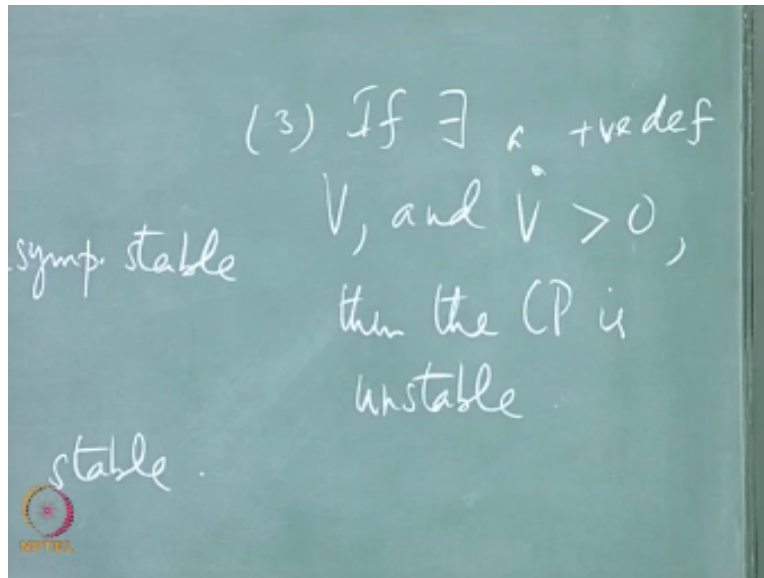 (3) If ∃ a +ve def
V, and V̇ > 0,
then the CP is
unstable.
symp. stable
stable.
NPTEL